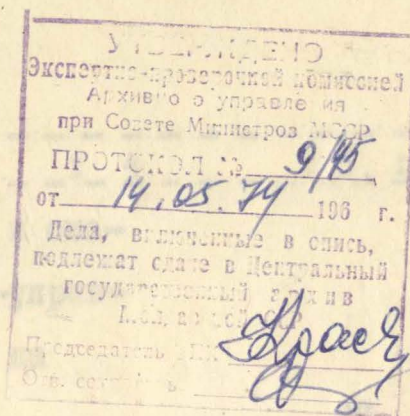 УТВЕРЖДЕНО
Экспертно-проверочной комиссией
Архивного управления
при Совете Министров МССР
ПРОТОКОЛ № 9/95
от 14.05.74 196 г.
Дела, включенные в опись,
подлежат сдаче в Центральный
государственный архив
Председатель
Отв. секретарь